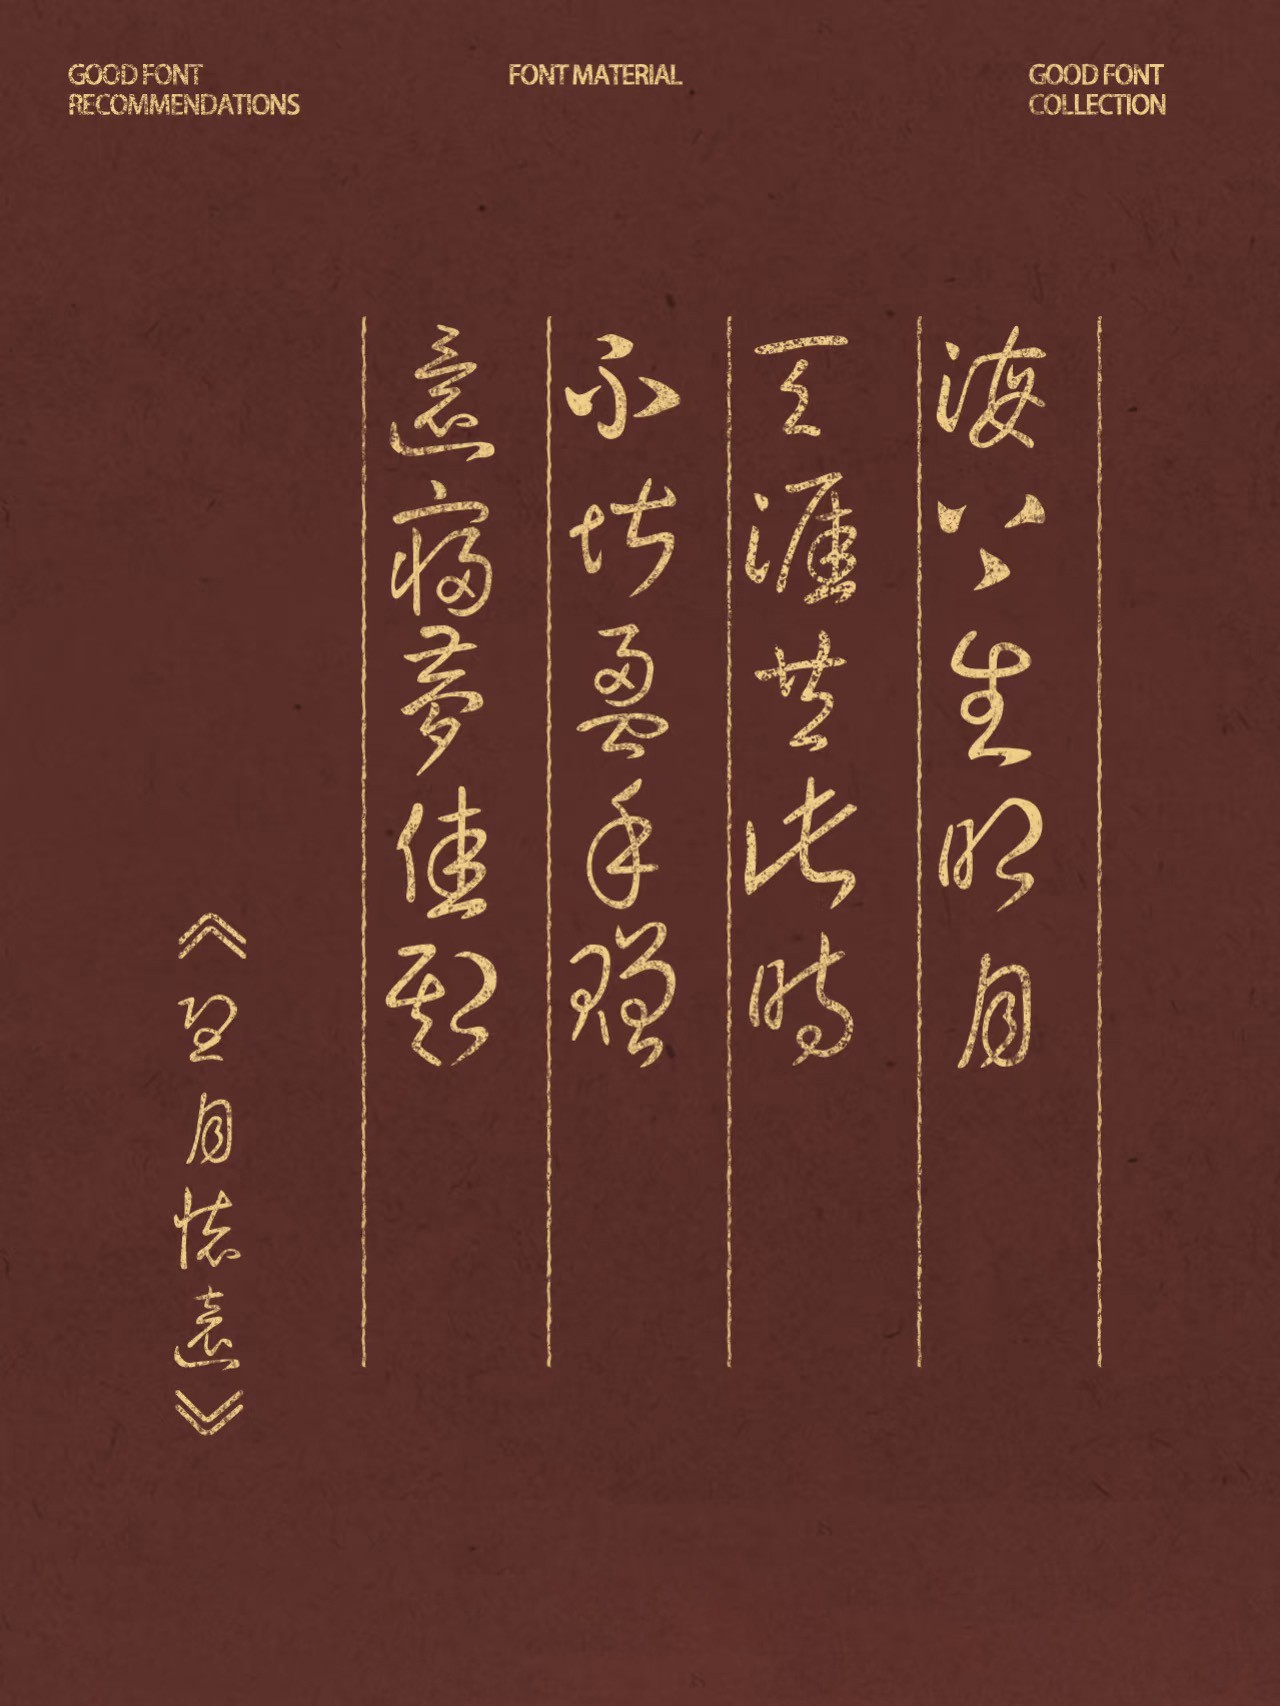 GOOD FONT
RECOMMENDATIONS
FONT MATERIAL
GOOD FONT
COLLECTION
海上生明月
天涯共此時
不堪盈手贈
還寢夢佳期
《望月懷遠》